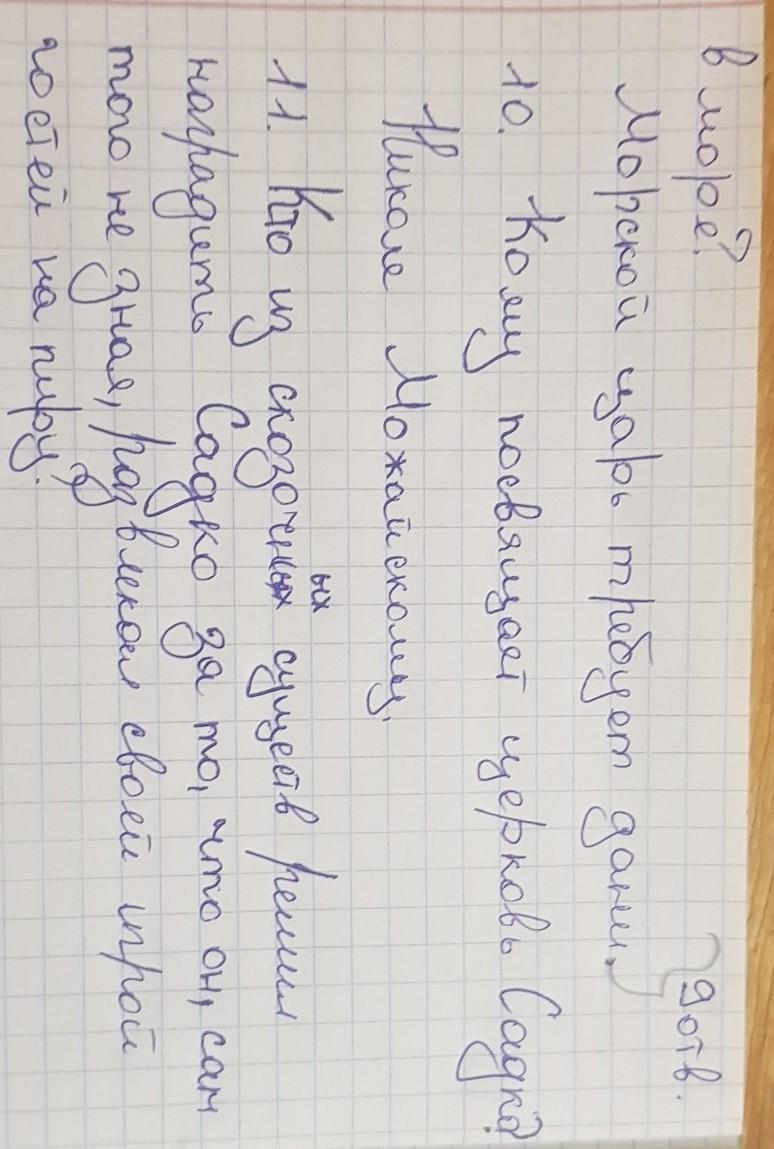 в море?
9 отв.
Морской царь требует дани.
10. Кому посвящает церковь Садко?
Николе Можайскому.
11. Кто из сказочных существ решил
наградить Садко за то, что он, сам
того не зная, развлекал своей игрой
гостей на пиру?